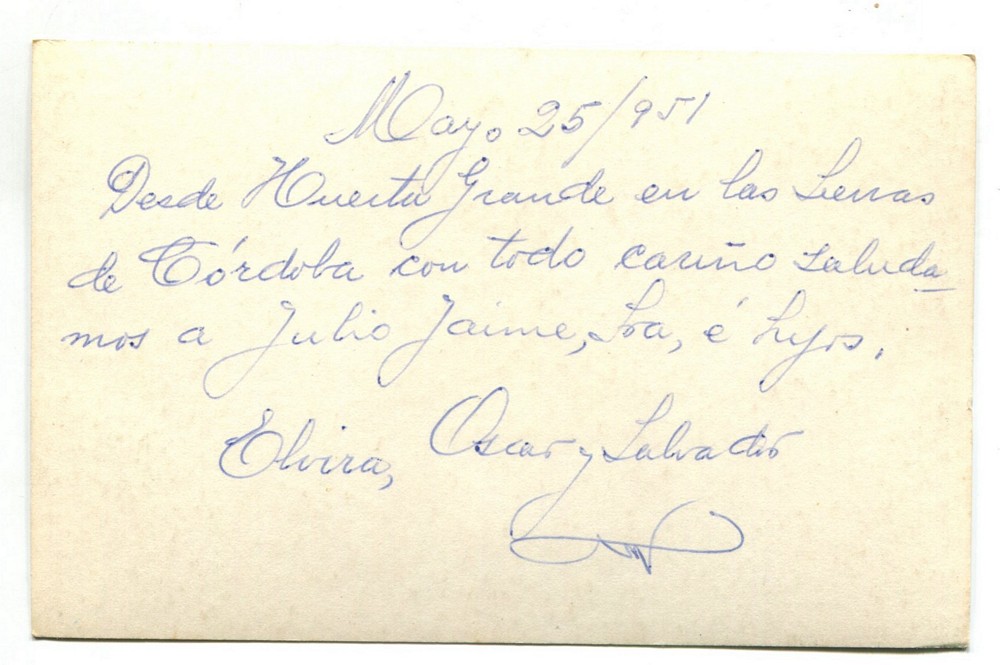 Mayo 25/951
Desde Huerta Grande en las Sierras
de Córdoba con todo cariño saluda-
mos a Julio Jaime, Sra, é hijos.
Elvira, Oscar y Salvador